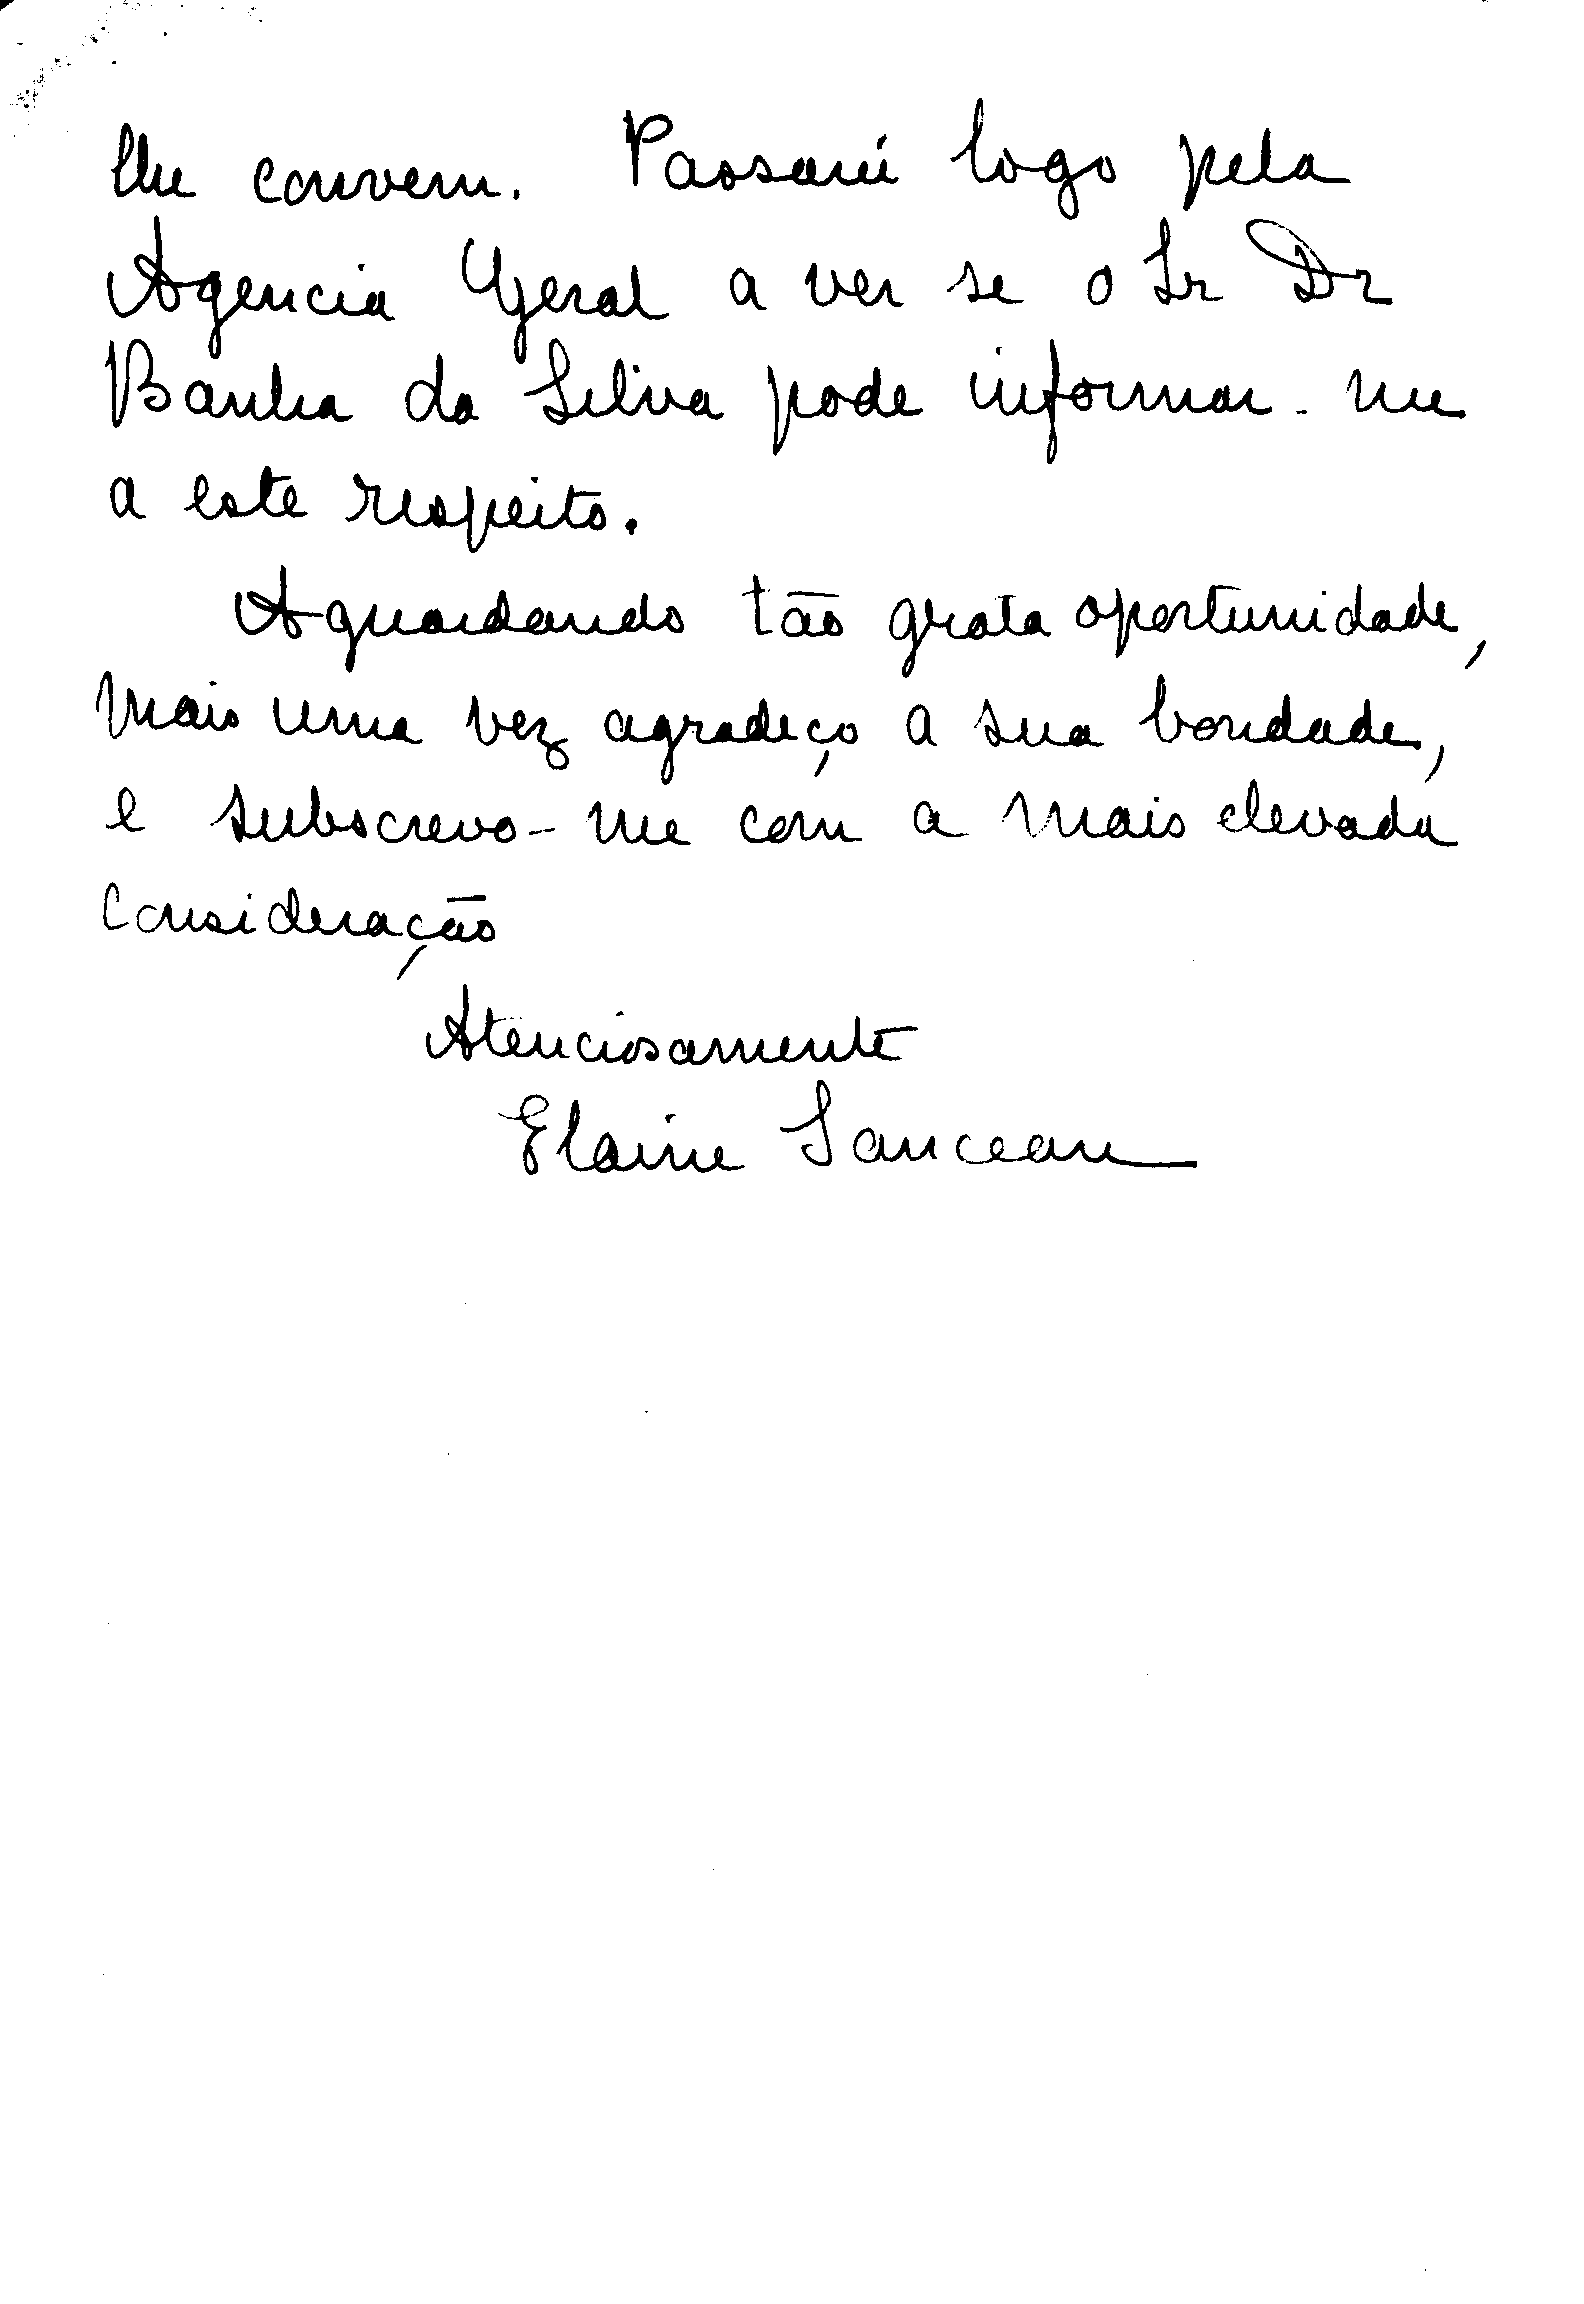 lhe convem. Passarei logo pela
Agencia Geral a ver se o Sr Dr
Banha da Silva pode informar-me
a este respeito.
Aguardando tão grata oportunidade,
mais uma vez agradeço a sua bondade,
e subscrevo-me com a mais elevada
consideração
Atenciosamente
Elaine Sanceau